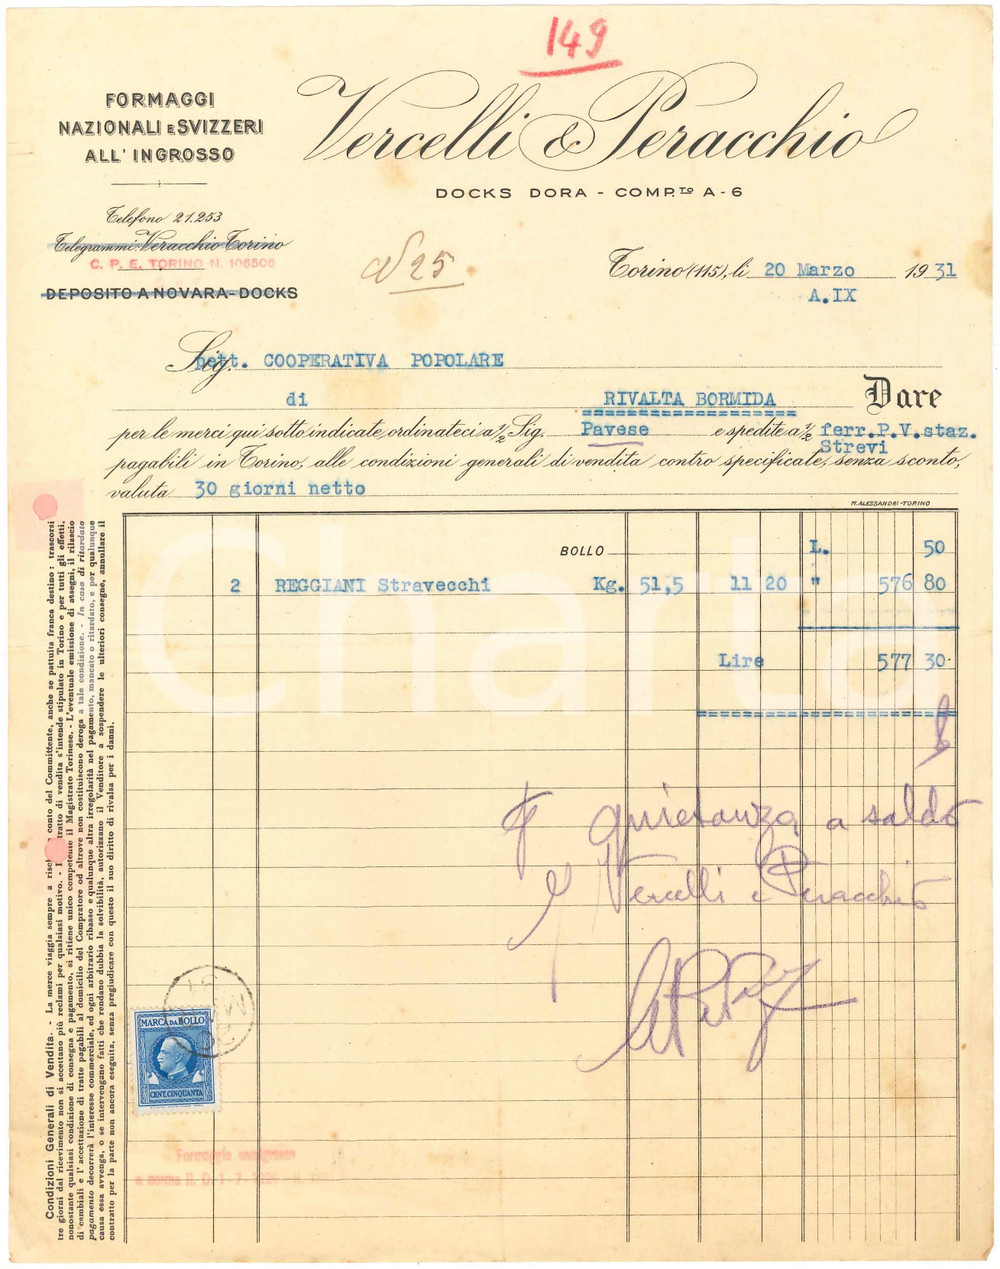 149
FORMAGGI
NAZIONALI E SVIZZERI
ALL' INGROSSO
Vercelli & Peracchio
DOCKS DORA - COMP.TO A-6
Telefono 21.253
Telegrammi: Veracchio Torino
C. P. E. TORINO N. 106506
DEPOSITO A NOVARA-DOCKS
25
Torino (115), li 20 Marzo 1931
A.IX
Sig. COOPERATIVA POPOLARE
di RIVALTA BORMIDA Dare
per le merci qui sotto indicate ordinateci a ½ Sig. Pavese e spedite a ½ ferr.P.V.staz.
Strevi
pagabili in Torino, alle condizioni generali di vendita contro specificate, senza sconto,
valuta 30 giorni netto
M. ALESSANDRI-TORINO
BOLLO L. 50
2 REGGIANI Stravecchi Kg. 51,5 11 20 " 576 80
Lire 577 30
quietanza a saldo
Vercelli e Peracchio
MARCA DA BOLLO
CENT. CINQUANTA
Formaggio semigrasso
a norma R. D. 1-7-
Condizioni Generali di Vendita. - La merce viaggia sempre a conto del Committente, anche se pattuita franca destino: trascorsi
tre giorni dal ricevimento non si accettano più reclami per qualsiasi motivo. - tratto di vendita s'intende stipulato in Torino e per tutti gli effetti,
nonostante qualsiasi condizione di consegna e pagamento, si ritiene unico competente il Magistrato Torinese. - L'eventuale emissione di assegni, il rilascio
di cambiali e l'accettazione di tratte pagabili al domicilio del Compratore od altrove non costituiscono deroga a tale condizione. - In caso di ritardato
pagamento decorrerà l'interesse commerciale, ed ogni arbitrario ribasso e qualunque altra irregolarità nel pagamento, mancato o ritardato, e per qualunque
causa esso avvenga, o se intervengano fatti che rendano dubbia la solvibilità, autorizzano il Venditore a sospendere le ulteriori consegne, annullare il
contratto per la parte non ancora eseguita, senza pregiudicare con questo il suo diritto di rivalsa per i danni.